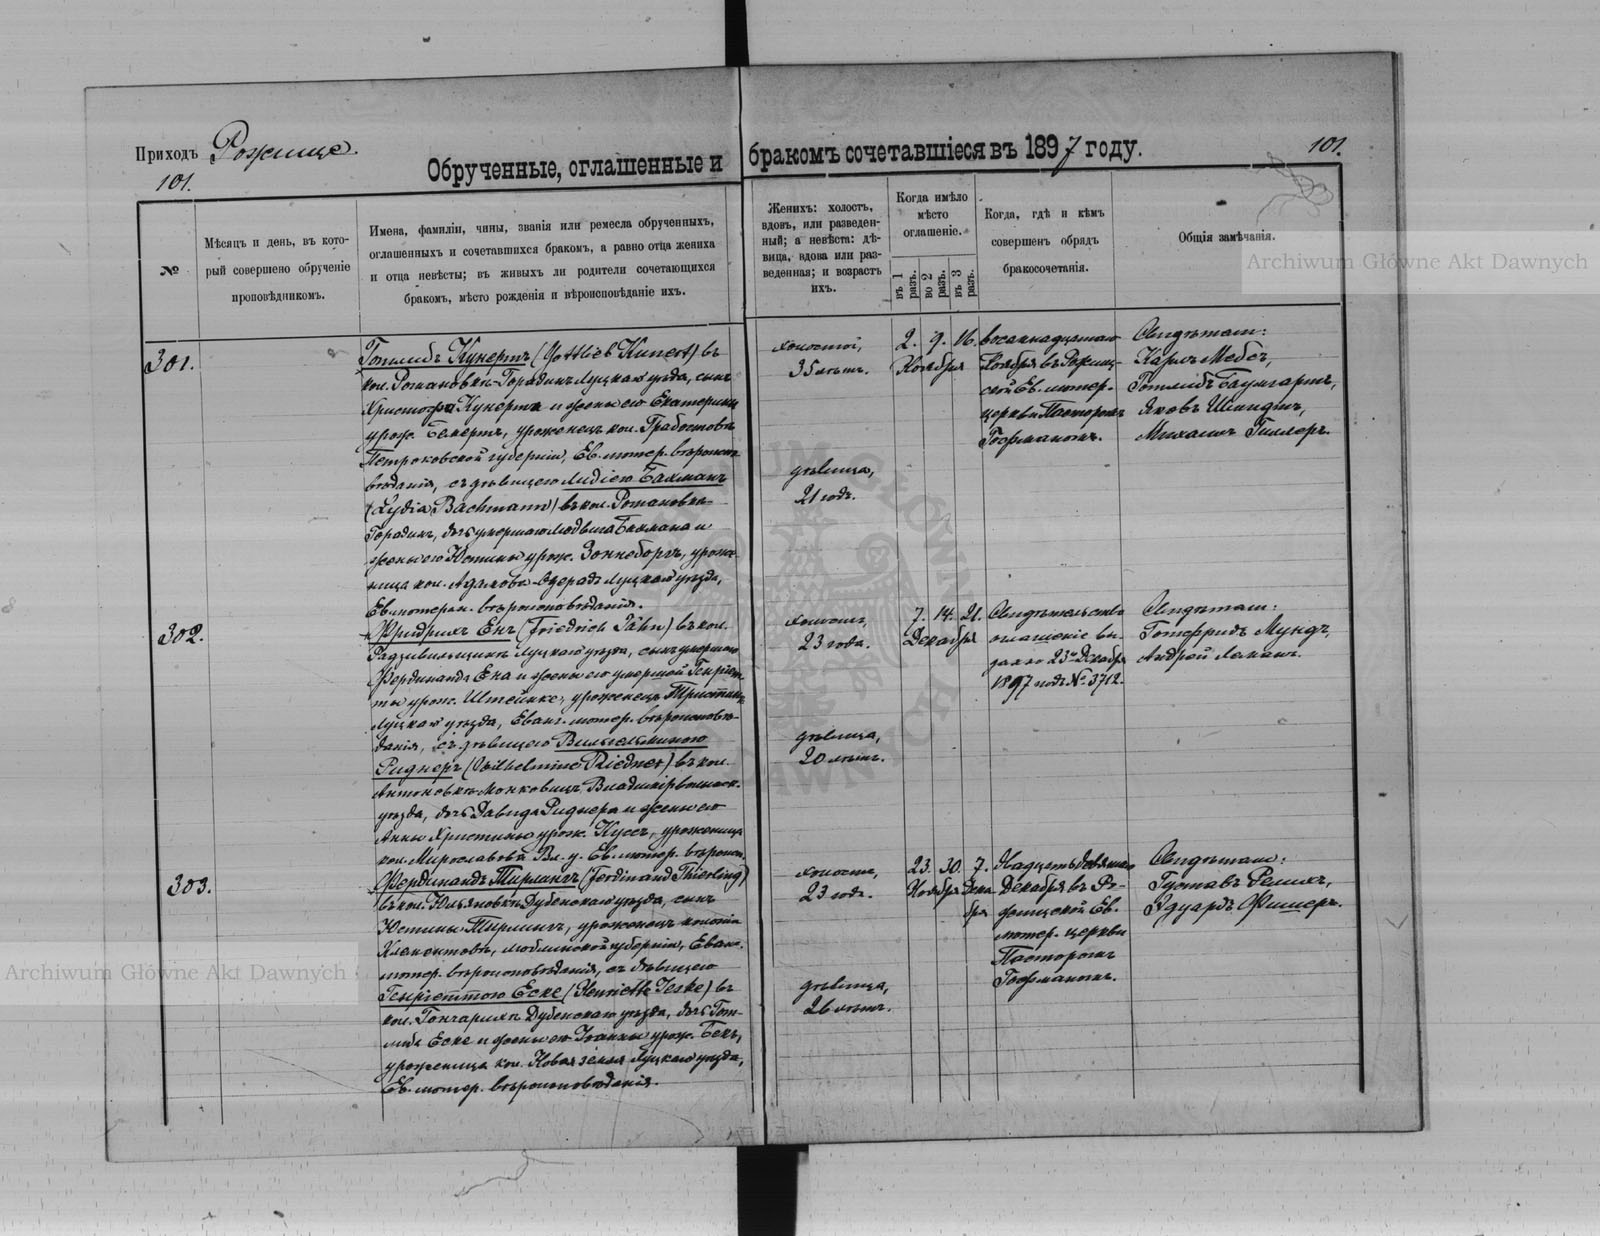 Приходъ Рожище.
101.
Обрученные, оглашенные и бракомъ сочетавшіеся въ 1897 году.
101.
№
Мѣсяцъ и день, въ кото-
рый совершено обрученіе
проповѣдникомъ.
Имена, фамиліи, чины, званія или ремесла обрученныхъ,
оглашенныхъ и сочетавшихся бракомъ, а равно отца жениха
и отца невѣсты; въ живыхъ ли родители сочетающихся
бракомъ, мѣсто рожденія и вѣроисповѣданіе ихъ.
Женихъ: холостъ,
вдовъ, или разведен-
ный; а невѣста: дѣ-
вица, вдова или раз-
веденная; и возрастъ
ихъ.
Когда имѣло
мѣсто
оглашеніе.
въ 1 разъ.
во 2 разъ.
въ 3 разъ.
Когда, гдѣ и кѣмъ
совершенъ обрядъ
бракосочетанія.
Общія замѣчанія.
Archiwum Główne Akt Dawnych
301.
Готлибъ Кунертъ (Gottlieb Kunert) въ
кол. Романовкѣ-Городокъ Луцкаго уѣзда, сынъ
Христофа Кунерта и жены его Екатерины
урож. уроженецъ кол. Грабостовъ
Петроковской губерніи, Ев. лютер. вѣроиспо-
вѣданія, съ дѣвицею Лидіею Бахманъ
(Lydia Bachmann) въ кол. Романовкѣ-
Городокъ, дочь умершаго Людвига Бахмана и
жены его Юстины урож. Зоннебергъ, уроже-
ница кол. Луцкаго уѣзда,
Ев. лютеран. вѣроисповѣданія.
холостой,
35 лѣтъ.
дѣвица,
21 годъ.
2. 9. 16.
Ноября
восемнадцатаго
Ноября въ Рожищ-
ской Ев. лютер.
церкви Пасторомъ
Гофманомъ.
Свидѣтели:
Карлъ Мебсъ,
Готлибъ Баумгартъ,
Яковъ Шмидтъ,
Михаилъ Гиллеръ.
302.
Фридрихъ Енъ (Friedrich Jähn) въ кол.
Луцкаго уѣзда, сынъ умершаго
Фердинанда Ена и жены его умершей Генріет-
ты урож. Штейнке, уроженецъ
Луцкаго уѣзда, Еванг. лютер. вѣроисповѣ-
данія, съ дѣвицею Вильгельминою
Риднеръ (Wilhelmine Riedner) въ кол.
Антоновкѣ Владимірволынск.
уѣзда, дочь Давида Риднера и жены его
Анны Христины урож. Куссъ, уроженица
кол. Мирославовка Вл. у. Ев. лютер. вѣроисп.
холостъ,
23 года.
дѣвица,
20 лѣтъ.
7. 14. 21.
Декабря
Свидѣтельство
оглашеніе вы-
дано 23го Декабря
1897 года № 3712.
Свидѣтели:
Готфридъ Мундъ,
Андрей Леманъ.
303.
Фердинандъ Тирлингъ (Ferdinand Thierling)
въ кол. Юльяновкѣ Дубенскаго уѣзда, сынъ
Юстины Тирлингъ, уроженецъ колоніи
Клементовъ, Люблинской губерніи, Еванг.
лютер. вѣроисповѣданія, съ дѣвицею
Генріеттою Еске (Henriette Jeske) въ
кол. Гончарихѣ Дубенскаго уѣзда, дочь Гот-
либа Еске и жены его Іоанны урож. Бекъ,
уроженица кол. Новая земля Луцкаго уѣзда,
Ев. лютер. вѣроисповѣданія.
холостъ,
23 года.
дѣвица,
26 лѣтъ.
23. 30. 7.
Ноября Дека-
бря
Двадцать девятаго
Декабря въ Ро-
жищской Ев.
лютер. церкви
Пасторомъ
Гофманомъ.
Свидѣтели:
Густавъ Реміхъ,
Эдуардъ Фишеръ.
Archiwum Główne Akt Dawnych